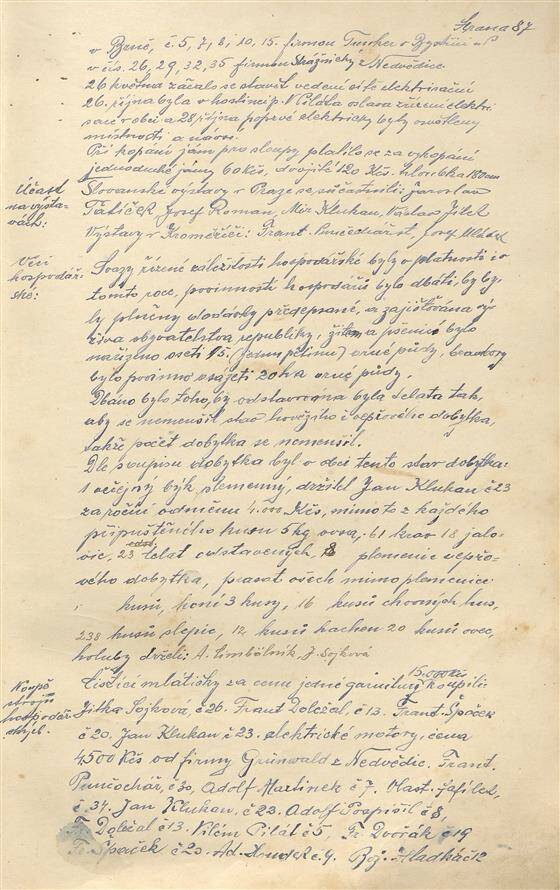 Strana 87
v Brně, č. 5, 7, 8, 10, 15. firmou Tuscher v Bystřici n P
v čís. 26, 29, 32, 35 firmou Strážnický z Nedvědice
26 května začalo se stavět vedení sítě elektrisační
26. října byla v hostinci p. V Piláta oslava zřízení elektri-
sace v obci a 28. října poprvé elektricky byly osvětleny
místnosti a návsi.
Při kopání jam pro sloupy platilo se za vykopání
jednoduché jámy 60 Kčs, dvojité 120 Kčs. hloubka 180 cm
Účast
na výsta-
vách:
Slovanské výstavy v Praze se súčastnili: Jaroslav
Tatíček, Josef Roman, Mir. Klukan, Václav Jílek
Výstavy v Kroměříži: Frant. Punčochář st., Josef
Věci
hospodář-
ské:
Svazy řízené záležitosti hospodářské byly v platnosti i v
tomto roce, povinností hospodářů bylo dbáti, by by-
ly plněny dodávky předepsané, a zajišťována vý-
živa obyvatelstva republiky, žitem a pšenicí bylo
nařízeno oseti 1/5. (jednu pětinu) orné půdy, brambory
bylo povinno vsázeti 20 ha orné půdy.
Dbáno bylo toho, by odstavována byla telata tak,
aby se nemenšil stav hovězího i vepřového dobytka,
takže počet dobytka se nemenšil.
Dle soupisu dobytka byl v obci tento stav dobytka:
1 veřejný býk plemenný, držitel Jan Klukan č 23
za roční odměnu 4.000 Kčs, mimo to z každého
připuštěného kusu 5 kg ovsa, 61 krav 18 jalo-
vic, 23 telat odstavených, 8 plemenic vepřo-
vého dobytka, prasat všech mimo plemenice
kusů, koní 3 kusy, 16 kusů chovných hus,
238 kusů slepic, 12 kusů kachen 20 kusů ovec,
holuby drželi: A. Cimbálník, J. Sojková
Koupě
strojů
hospodář-
ských.
Čistící mlátičky za cenu jedné garnitury 15.000 Kčs koupili
Jitka Sojková, č 26. Frant Doležal, č 13. Frant. Špaček
č 20. Jan Klukan č 23. elektrické motory, cena
4500 Kčs od firmy Grünwald z Nedvědice. Frant.
Punčochář, č 30, Adolf Martinek č 7. Vlast.
č. 34. Jan Klukan, č 23. Adolf Pospíšil č 8,
Fr. Doležal č 13. Vilém Pilát č 5 Fr. Dvořák č 19
Fr. Špaček č 20. Ad. č 9. Boj. Hladká č 12